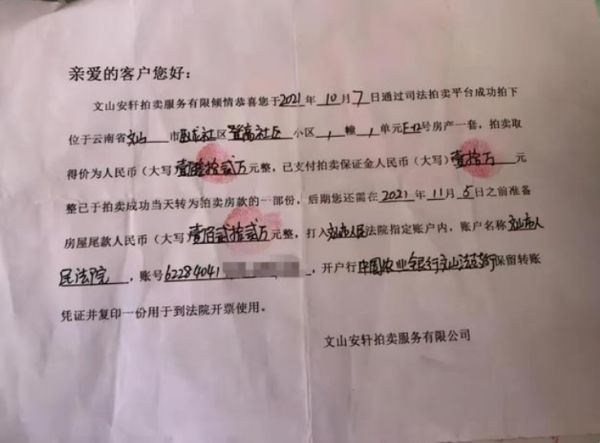 亲爱的客户您好：
文山安轩拍卖服务有限倾情恭喜您于2021年10月7日通过司法拍卖平台成功拍下
位于云南省文山市 社区登高社区小区1幢1单元E-12号房产一套，拍卖取
得价为人民币（大写 拾贰万元整，已支付拍卖保证金人民币（大写）壹拾万元
整已于拍卖成功当天转为拍卖房款的一部份，后期您还需在2021年11月5日之前准备
房屋尾款人民币（大写壹佰贰拾贰万元整，打入文山市人民法院指定账户内，账户名称文山市人
民法院，账号62284041 ，开户行中国农业银行文山 行保留转账
凭证并复印一份用于到法院开票使用。
文山安轩拍卖服务有限公司